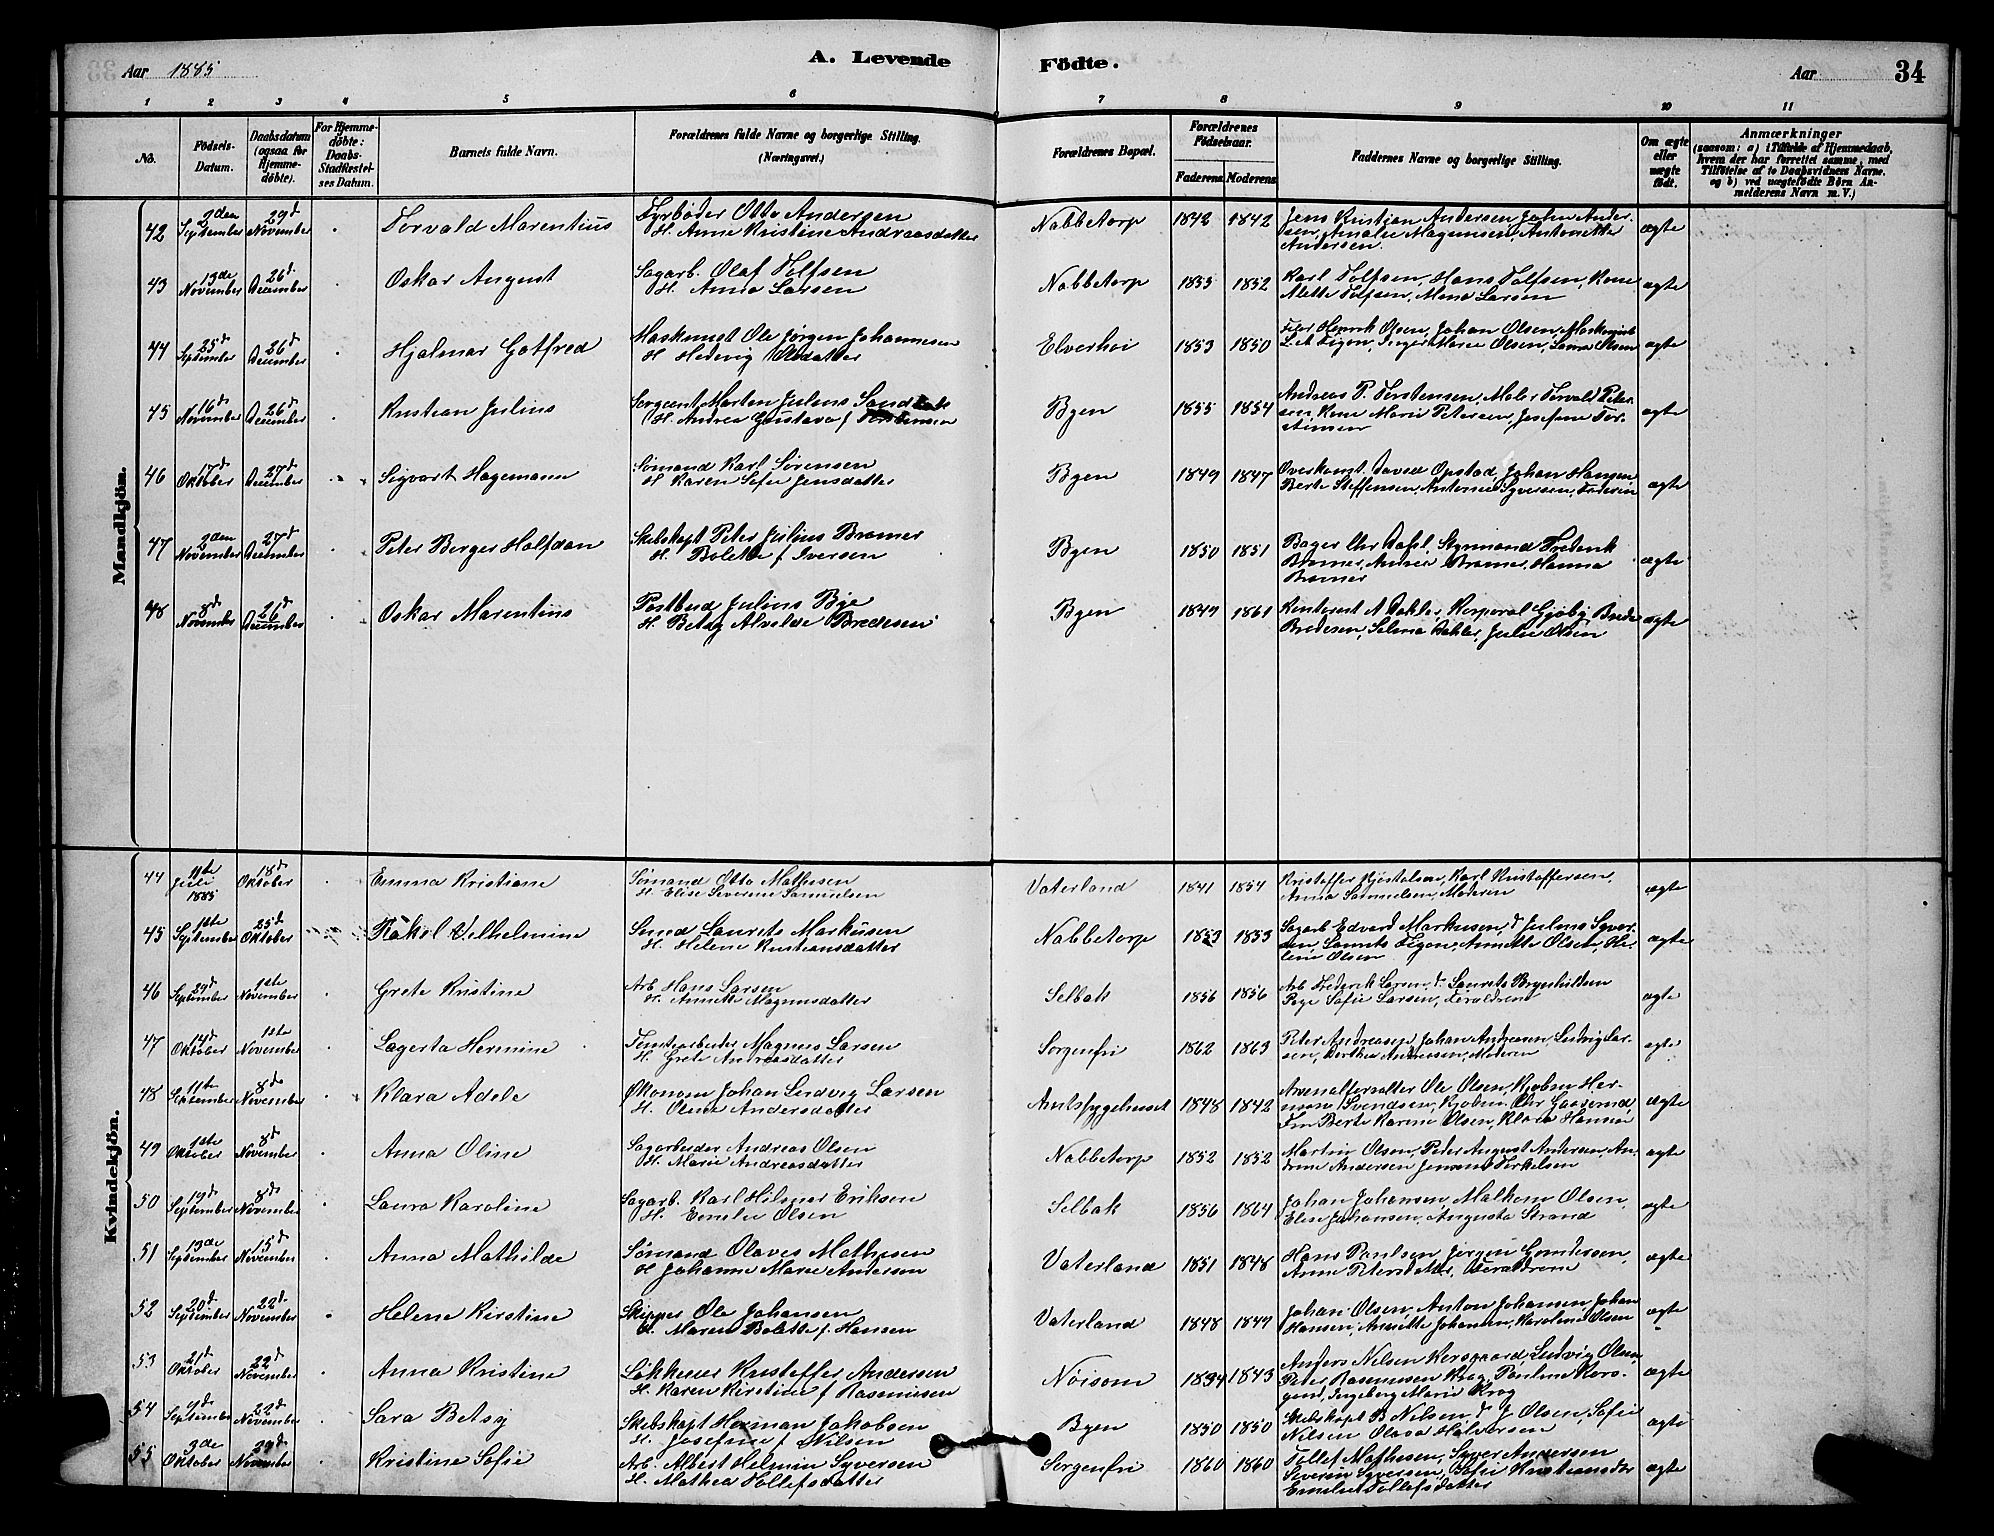 Aar 1885
A. Levende
Födte.
Aar
34
1 2 3 4 5 6 7 8 9 10 11
No.
Födsels-
Datum.
Daabsdatum
(ogsaa for
Hjemme-
döbte).
For Hjemme-
döbte:
Daabs-
Stadfestel-
ses Datum.
Barnets fulde Navn.
Forældrenes fulde Navne og borgerlige Stilling.
(Næringsvei.)
Forældrenes Bopæl.
Forældrenes
Födselsaar.
Faderens Moderens
Faddernes Navne og borgerlige Stilling.
Om ægte
eller
uægte
födt.
Anmærkninger
(saasom: a) i Tilfælde af Hjemmedaab,
hvem der har forrettet samme, med
Tilföielse af to Daabsvidners Navne,
og b) ved uægtefödte Börn An-
melderens Navn m. V.)
Mandkjön.
42 2den September 29d November Torvald Marentius
Fyrbøder Otto Andersen
H. Anne Kristine Andreasdatter
Nabbetorp 1842 1842
Jens Kristian Andersen, Johan Ander-
sen, Amalie Magnusen, Antonette
Andersen
ægte
43 13de November 26d December Oskar August
Sagarb. Olaf Tolfsen
H. Anna Larsen
Nabbetorp 1855 1852
Karl Tolfsen, Hans Tolfsen, Kone
Alette Tolfsen, Mina Larsen
ægte
44 25d September 26d December Hjalmar Gotfred
Maskinist Ole Jørgen Johannesen
H. Hedvig Olsdatter
Elverhøi 1853 1850
Henrik Olsen, Johan Olsen, Maskinist
Inger Marie Olsen, Laura Olsen
ægte
45 16d November 26d December Kristian Julius
Sergeant Morten Julius
H. Andrea Gustava f. Torstensen
Byen 1855 1854
Andreas P. Torstensen, Maler Torvald Peter-
sen, Kone Marie Petersen, Josefine Tor-
stensen
ægte
46 17d Oktober 27d December Sigvart Hagemann
Sømand Karl Sørensen
H. Karen Sofie Jensdatter
Byen 1849 1847
Overkonst. David Opstad, Johan Hansen
Berte Steffensen, Antonie Syversen, Faderen
ægte
47 2den November 27d December Peter Berger Halfdan
Skibskapt Peter Julius Bramer
H. Bolette f. Iversen
Byen 1850 1851
Bager Chr Dahl, Styrmand Frederik
Bramer, Andrea Bramer, Hanna
Bramer
ægte
48 8d November 26d December Oskar Marentius
Postbud Julius Bye
H. Betsy Alvilde Bredesen
Byen 1849 1861
Kontorist A Dahler, Korporal Gjøby, Brede
Bredesen, Selma Dahler, Julie Olsen
ægte
Kvindekjön.
44 11te Juli 1885 18d Oktober Emma Kristiane
Sømand Otto Mathesen
H. Elise Severine Samuelsen
Vaterland 1841 1854
Kristoffer Kjøstolsen, Karl Kristoffersen,
Anna Samuelsen, Moderen
ægte
45 1ste September 25d Oktober Rakel Vilhelmine
Smed Laurits Markusen
H. Helene Kristiansdatter
Nabbetorp 1853 1853
Sagarb Edvard Markusen, d. Julius Syver-
sen, Laurits Annette Olsen, He-
line Olsen
ægte
46 29d September 1ste November Grete Kristine
Arb Hans Larsen
H. Annette Magnusdatter
Selbak 1856 1856
Arb Frederik Larsen, d. Laurits Brynhildsen
Pige Sofie Larsen, Forældrene
ægte
47 14d Oktober 1ste November Lagerta Hermine
Tomtearbeider Magnus Larsen
H. Grete Andreasdatter
Sorgenfri 1862 1863
Peter Andreasen, Johan Andreasen, Ludvig Lar-
sen, Berthe Andreasen, Moderen
ægte
48 11te September 8de November Klara Adele
Økonom Johan Ludvig Larsen
H. Oline Andersdatter
Amtssygehuset 1848 1842
Arsenalforvalter Ole Olsen, Kjøbm Her-
mann Svendsen, Kjøbm. Chr Gaaserud,
Fru Berte Karine Olsen, Klara Hannar
ægte
49 1ste Oktober 8d November Anna Oline
Sagarbeider Andreas Olsen
H. Marie Andreasdatter
Nabbetorp 1852 1852
Martin Olsen, Peter August Andersen, An-
drine Andersen Jensine Torkelsen
ægte
50 19d September 8de November Laura Karoline
Sagarb. Karl Hilmar Eriksen
H. Emilie Olsen
Selbak 1856 1864
Johan Johansen Malkom Olsen,
Elise Johansen, Augusta Strand
ægte
51 13de September 15d November Anna Mathilde
Sømand Olaves Mathesen
H. Johanne Marie Andersen
Vaterland 1851 1848
Hans Paulsen, Jørgen Gundersen,
Anne Petersdatter, Forældrene
ægte
52 20d September 22d November Helene Kirstine
Skipper Ole Johansen
H. Maren Bolette f. Hansen
Vaterland 1848 1847
Johan Olsen, Anton Johansen, Johan
Hansen, Annette Johansen, Karoline Olsen
ægte
53 21d Oktober 22d November Anna Kristine
Løkkeeier Kristoffer Andersen
H. Karen Kirstine f Rasmussen
Nøisom 1834 1843
Anders Nilsen Korsgaard, Ludvig Olsen,
Peter Rasmussen Krog, Pauline Kors-
gaard, Ingeborg Marie Krog
ægte
54 9d September 22d November Sara Betsy
Skibskapt Herman Jakobsen
H. Josefine f Nilsen
Byen 1850 1850
Skibskapt B Nilsen, d. J Olsen, Sofie
Nilsen Olava Halvorsen
ægte
55 3de Oktober 29d November Kristine Sofie
Arb. Albert Helmin Syversen
H. Mathea Tollefsdatter
Sorgenfri 1860 1860
Tollef Mathisen, Syver Andersen
Severin Syversen, Sofie Kristiansdtr
Emilie Tollefsdatter
ægte